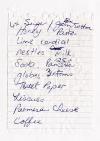 Sugar /
Honey Pasta
Lime cordial
nestles Milk
Soda
globes Bottoms
Toilet Paper
Tissues
Parmesan Cheese
Coffee